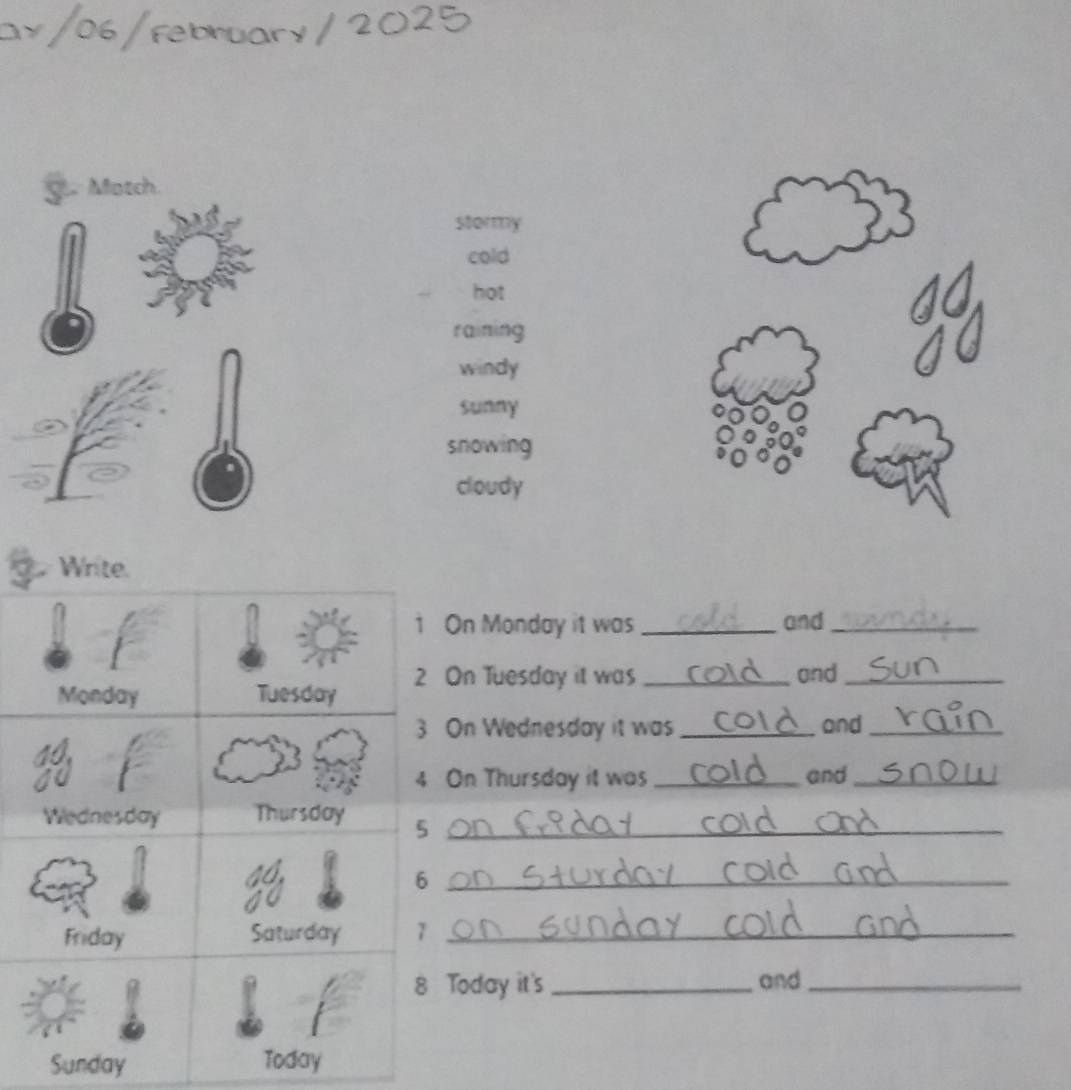 /06/February/2025
Match.
stormy
cold
hot
raining
windy
sunny
snowing
cloudy
Write.
Monday
Tuesday
Wednesday
Thursday
Friday
Saturday
Sunday
Today
1 On Monday it was cold and windy
2 On Tuesday it was cold and sun
3 On Wednesday it was cold and rain
4 On Thursday it was cold and snow
5 on friday cold and
6 on sturday cold and
7 on sunday cold and
8 Today it's ____ and ____